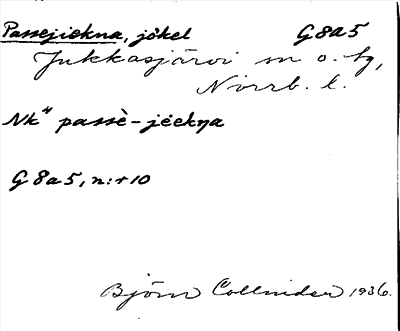 Passejiekna, jökel G8a5
Jukkasjärvi sn o. tg,
Norrb. l.
Nk" passè-jéekŋa
G8a5, n:r 10
Björn Collinder 1936.